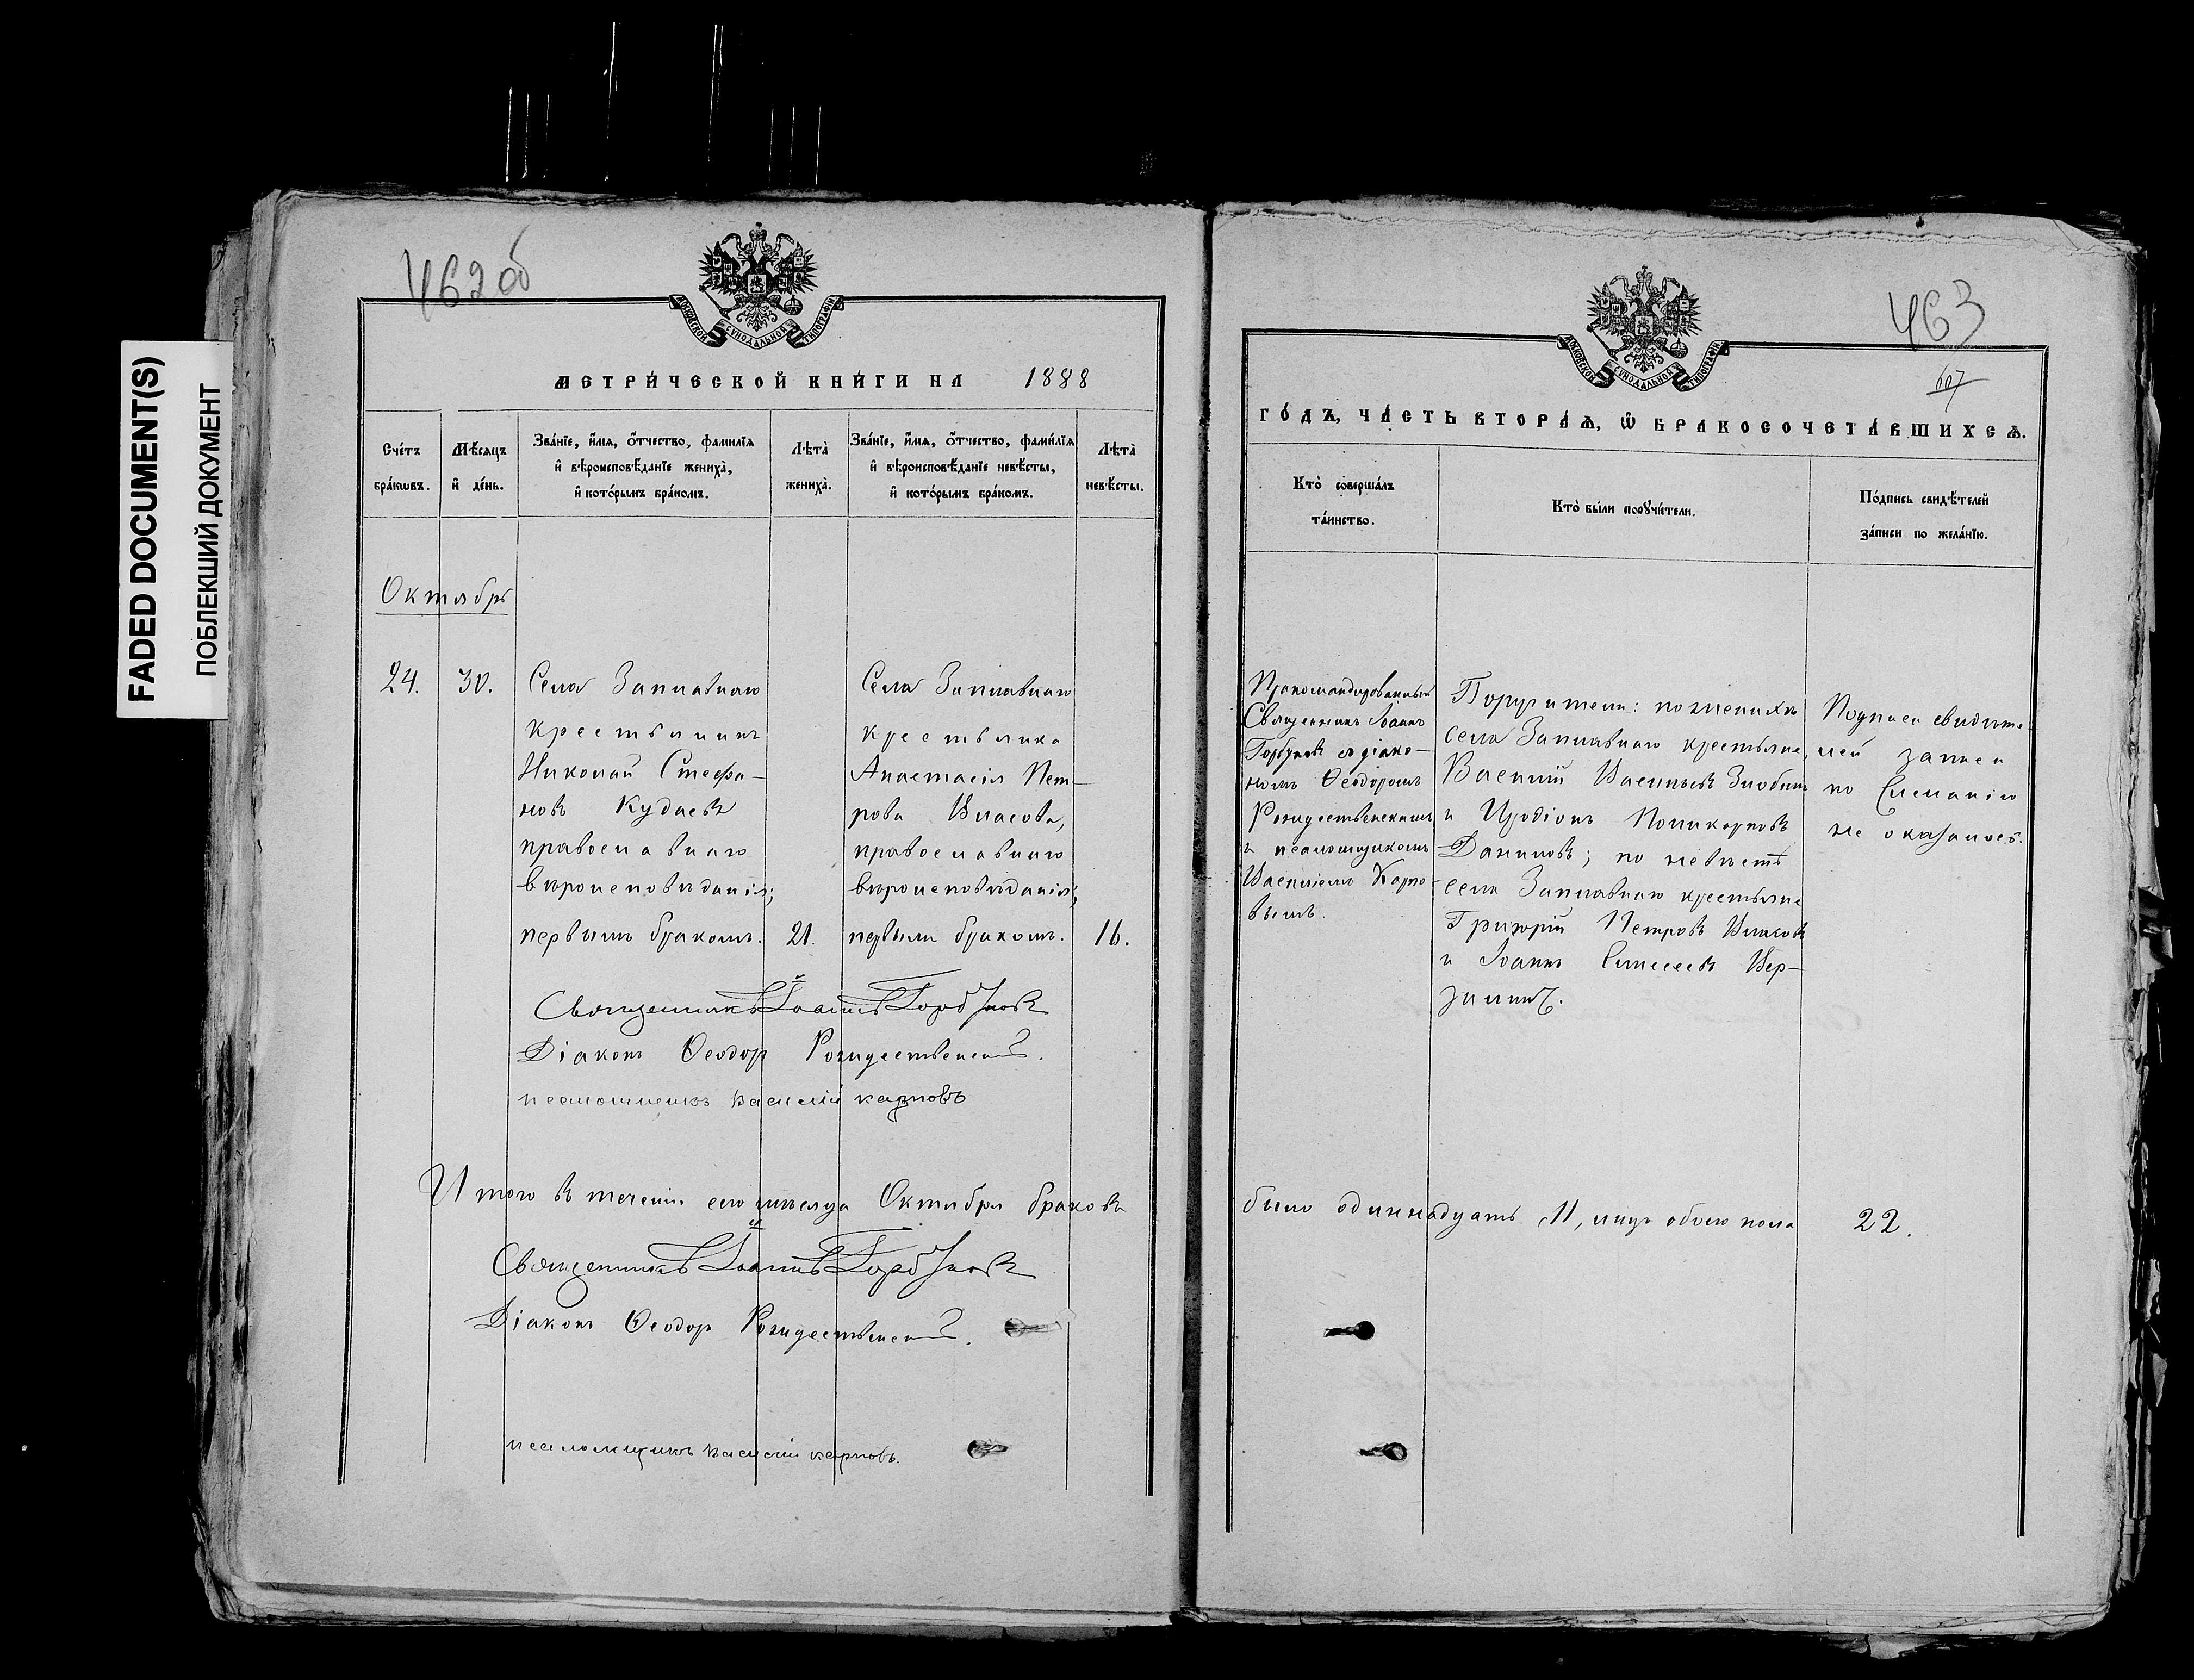 FADED DOCUMENT(S)
ПОБЛЕКШИЙ ДОКУМЕНТ
462об
МОСКОВСКОЙ СѴНОДАЛЬНОЙ ТИПОГРАФІИ
МЕТРИ́ЧЕСКОЙ КНИ́ГИ НА 1888
Сче́тъ бра́кωвъ.
Мѣ́сяцъ и҆ де́нь.
Зва́нїе, и҆́мя, ѻ҆́тчество, фами́лїя
и҆ вѣроисповѣ́данїе жениха̀,
и҆ кото́рымъ бра́комъ.
Лѣта̀ жениха̀.
Зва́нїе, и҆́мя, ѻ҆́тчество, фами́лїя
и҆ вѣроисповѣ́данїе невѣ́сты,
и҆ кото́рымъ бра́комъ.
Лѣта̀ невѣ́сты.
Октябрь
24.
30.
Села Заплавнаго
крестьянинъ
Николай Стефа-
новъ Кудаевъ
православнаго
вѣроисповѣданія;
первымъ бракомъ.
21.
Села Заплавнаго
крестьянка
Анастасія Пет-
рова Власова,
православнаго
вѣроисповѣданія;
первымъ бракомъ.
16.
Священникъ Іоаннъ Горбуновъ
Діаконъ Ѳеодоръ Рождественскій.
псаломщикъ Василій Карповъ
Итого въ теченіи сего мѣсяца Октября браковъ
Священникъ Іоаннъ Горбуновъ
Діаконъ Ѳеодоръ Рождественскій.
псаломщикъ Василій Карповъ.
463
607
МОСКОВСКОЙ СѴНОДАЛЬНОЙ ТИПОГРАФІИ
ГО́ДЪ, ЧА́СТЬ ВТОРА́Ѧ, Ѽ БРАКОСОЧЕТА́ВШИХСѦ.
Кто̀ соверша́лъ
та́инство.
Кто̀ бы́ли порꙋчи́тели.
По́дпись свидѣ́телей
за́писи по жела́нїю.
Прикомандированный
Священникъ Іоаннъ
Горбуновъ съ діако-
номъ Ѳеодоромъ
Рождественскимъ
и псаломщикомъ
Василіемъ Карпо-
вымъ.
Поручители: по женихѣ
села Заплавнаго крестьяне,
Василій Васильевъ Злобинъ
и Иродіонъ Поликарповъ
Даниловъ; по невѣстѣ
села Заплавнаго крестьяне
Григорій Петровъ Власовъ
и Іоаннъ Елисеевъ Вер-
зилинъ.
Подписи свидѣте-
лей записи
по желанію
не оказалось.
было одиннадцать 11, лицъ обоего пола 22.